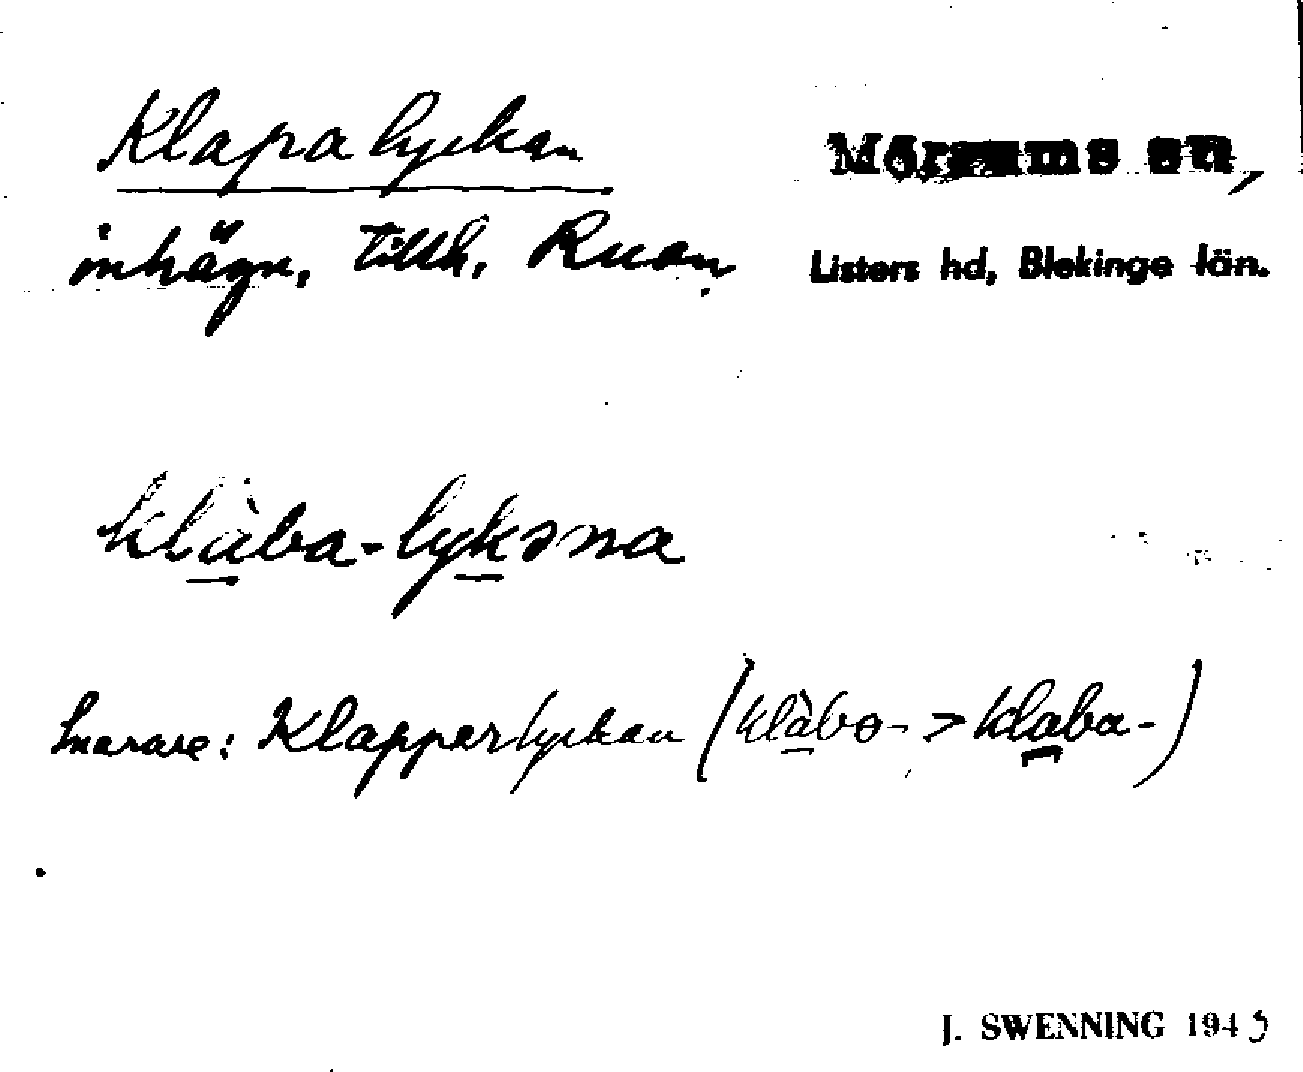 Klapalyckan
Mörrums sn,
inhägn, tillh. Ruan,
Listers hd, Blekinge län.
klàba-lykəna
Snarare: Klapperlyckan (klàbə- > klaba-)
J. SWENNING 1945